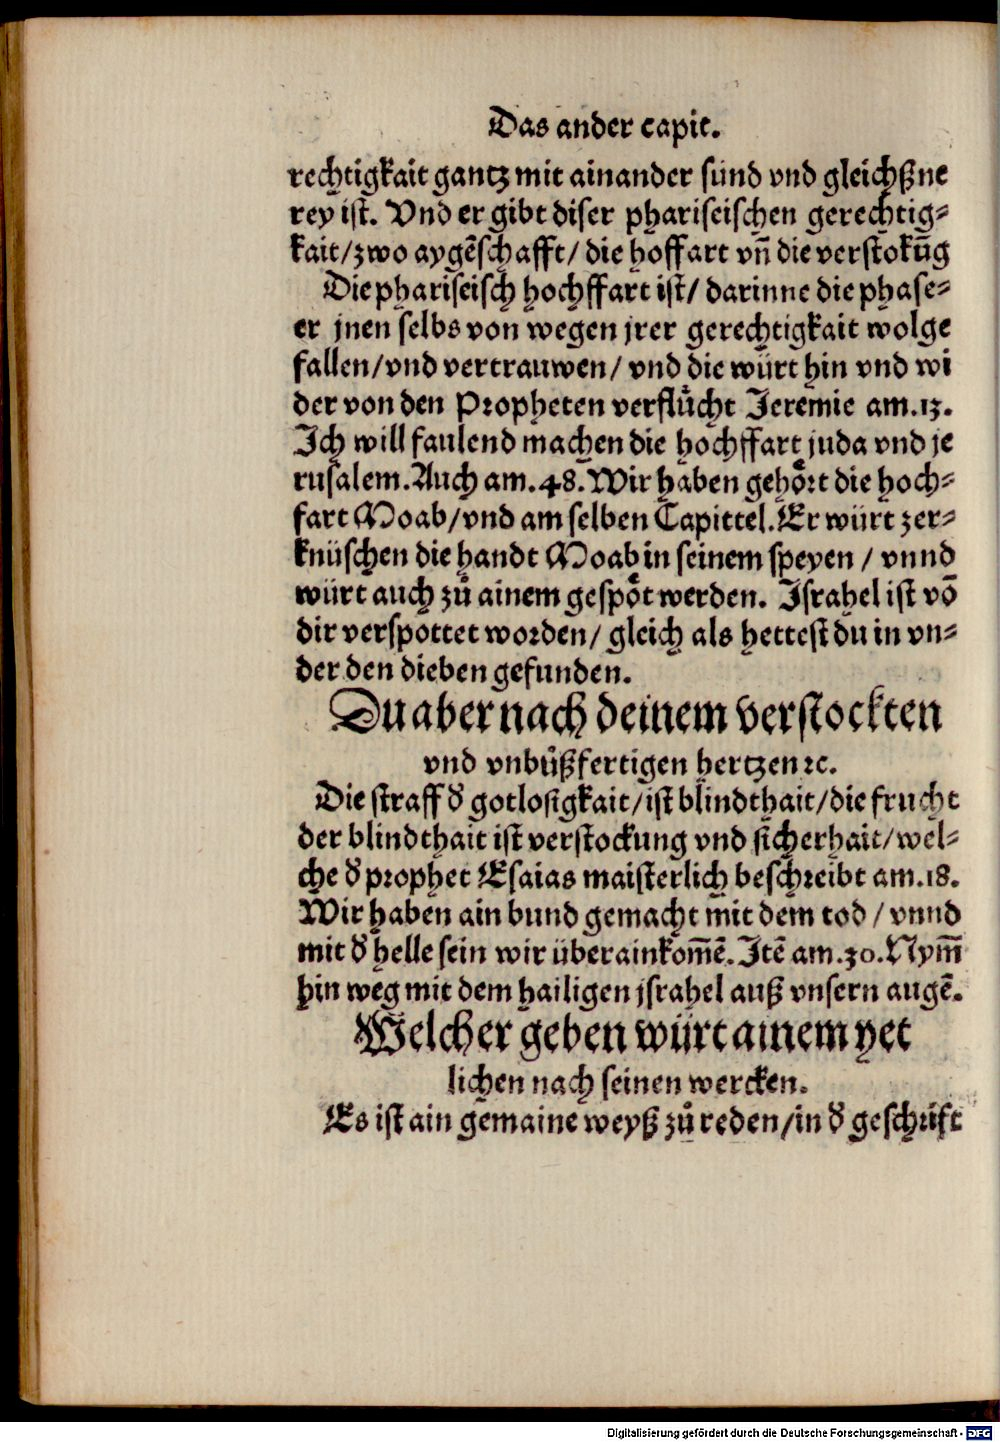 Das ander capit.
rechtigkait gantz mit ainander sünd vnd gleichßne
rey ist. Vnd er gibt diser phariseischen gerechtig⸗
kait/zwo aygẽschafft/ die hoffart vñ die verstokũg
Die phariseisch hochffart ist/ darinne die phase⸗
er jnen selbs von wegen jrer gerechtigkait wolge
fallen/vnd vertrauwen/ vnd die würt hin vnd wi
der von den Propheten verflůcht Jeremie am.13.
Ich will faulend machen die hochffart juda vnd je
rusalem.Auch am.48.Wir haben gehoͤrt die hoch⸗
fart Moab/vnd am selben Capittel.Er würt zer⸗
knüschen die handt Moab in seinem speyen / vnnd
würt auch zů ainem gespoͤt werden. Israhel ist võ
dir verspottet worden/ gleich als hettest du in vn⸗
der den dieben gefunden.
Du aber nach deinem verstockten
vnd vnbůßfertigen hertzen ꝛc.
Die straff d̕ gotlosigkait/ist blindthait/die frucht
der blindthait ist verstockung vnd sicherhait/wel⸗
che d̕ prophet Esaias maisterlich beschreibt am.18.
Wir haben ain bund gemacht mit dem tod / vnnd
mit d̕ helle sein wir überainkom̃ẽ.Itẽ am.30.Nym̃
hin weg mit dem hailigen jsrahel auß vnsern augẽ.
Welcher geben würt ainem yet
lichen nach seinen wercken.
Es ist ain gemaine weyß zů reden/in d̕ geschrift
Digitalisierung gefördert durch die Deutsche Forschungsgemeinschaft - DFG